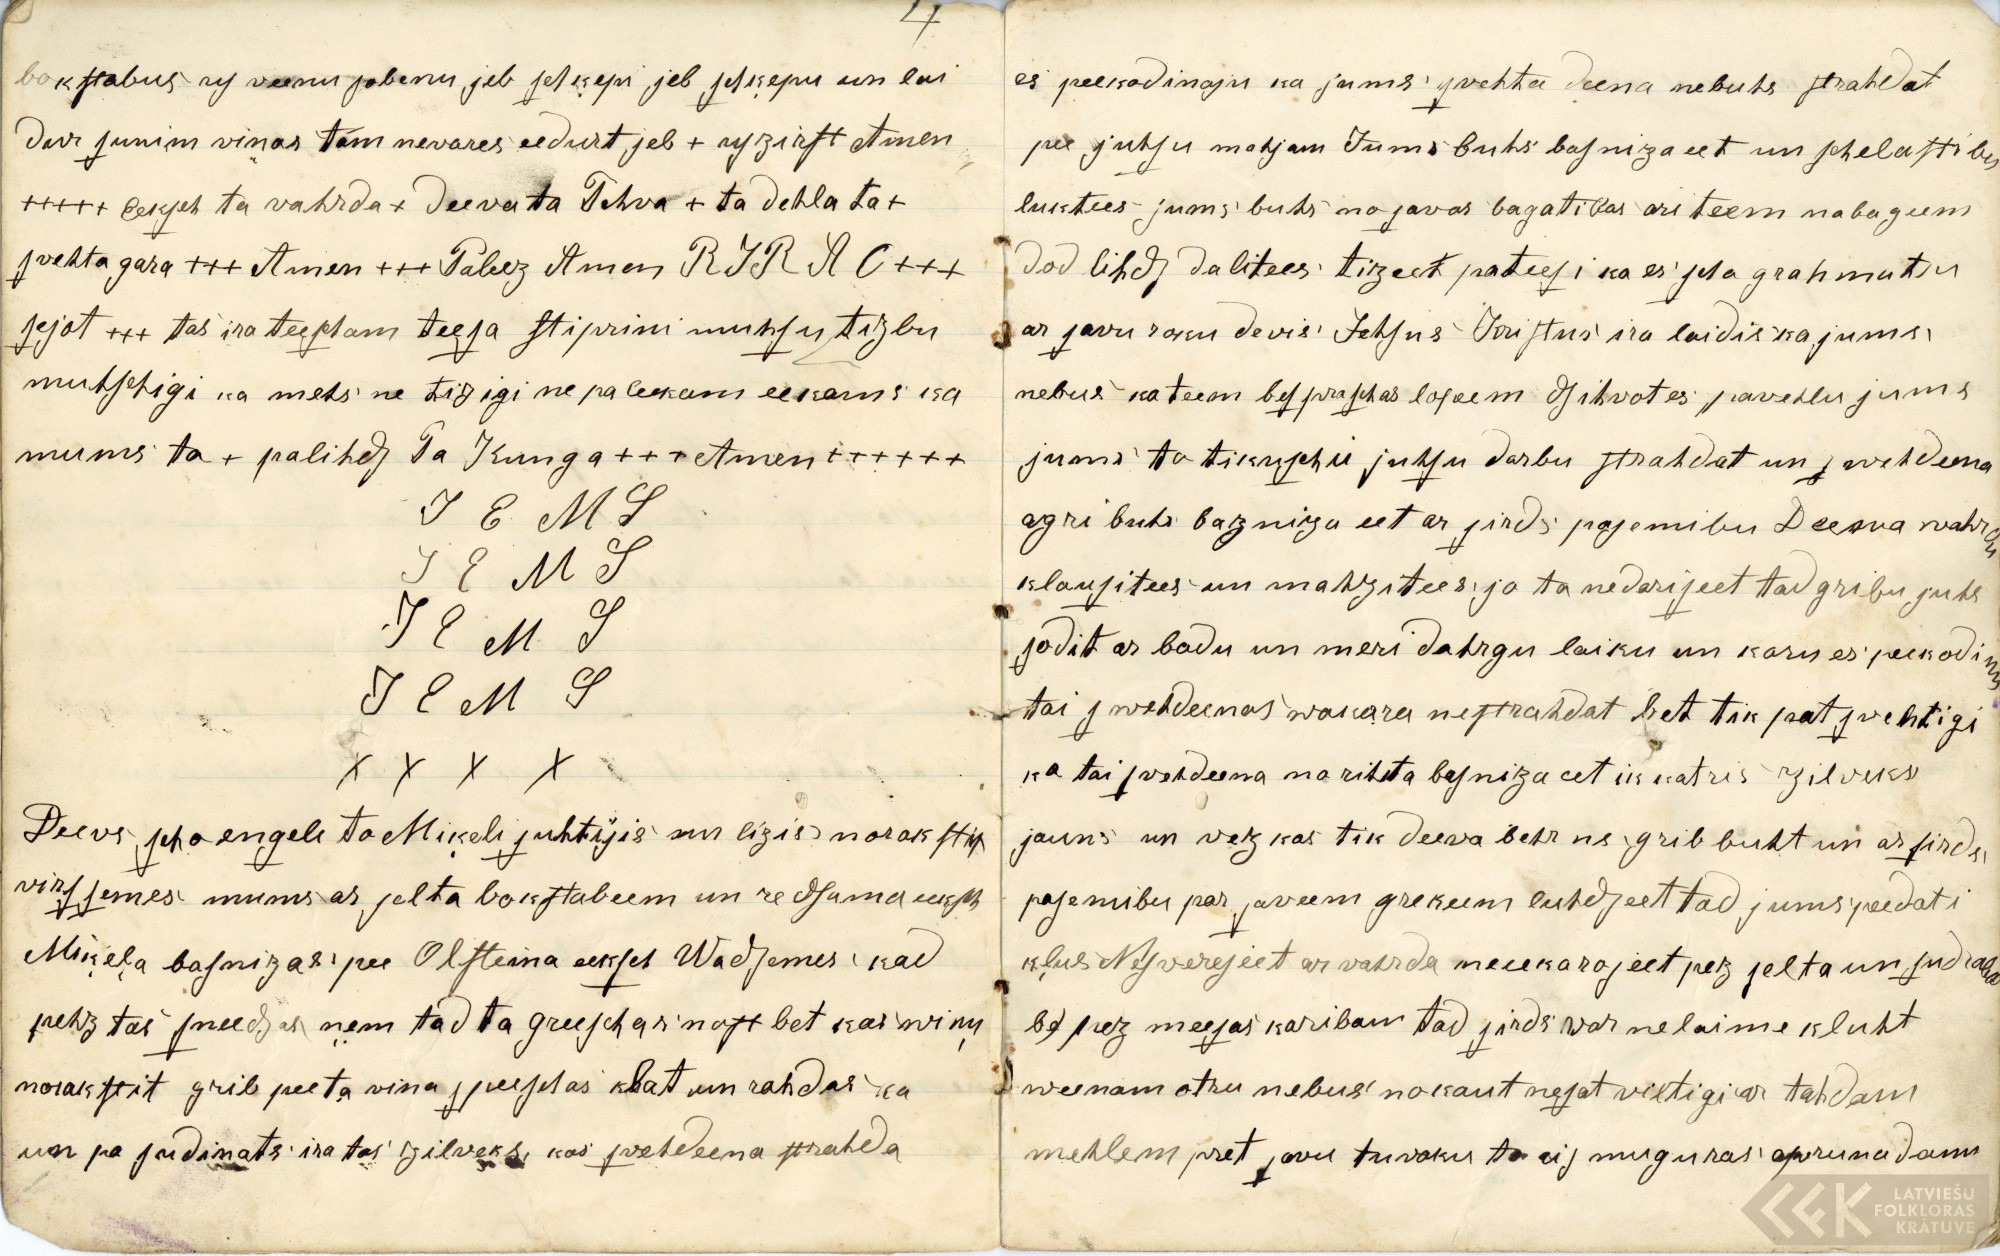 4
bokstabus uz veenu sobenu jeb schķepi jeb schķepu un lai
dur sunim viņas tam nevares eedurt jeb + uzzirst Amen
+++++ eeksch ta vahrda + deeva ta Tehva + ta dehla ta +
svehta gara +++ Amen +++ Paleez Amen R J R A C +++
sejot +++ tas ira teescham teesa stiprini muhsu tizbu
muhschigi ka mehs ne tizigi ne paleekam eekams ka
mums ta + palihdz Ta Kunga +++ Amen ++++++
J E M S
J E M S
J E M S
J E M S
x x x x
Deevs scho engeli to Miķeli suhtijis un lizis norakstit
virs semes mums ar selta bokstabeem un redsama eeksch
Miķeļa basnizas pee Olsteina eeksch Wadsemes kad
pehz tas sneedzas ņem tad ta greeschas nost bet kas wiņu
norakstit grib pee ta vina speeschas klat un rahdas ka
un pa sudinats ira tas zilveks, kas svehdeena strahda
es peekodinaju ka jums svehta deena nebuhs strahdat
pee juhsu mahjam Jums buhs basniza eet un schelastibu
luhtees jums buhs no savas bagatibas ari teem nabageem
dod lihdz dalitees tizeet pateesi ka es scho grahmatu
ar savu roku devis Jehsus Kristus ira laidis ka jums
nebus ka teem bes praschas lopeem dsihvotes pavehlu jums
jums to tikuschi juhsu darbu strahdat un swehdeena
agri buhs bazniza eet ar sirds pasemibu Deewa wahrdu
klausitees un mahzitees jo ta nedarijeet tad gribu juhs
sodit ar badu un meri dahrgu laiku un karu es peekodinu
tai swehdeenas wakara nestrahdat bet tik pat svehtigi
ka tai svehdeena no rihta basniza eet ik katris zilveks
jauns un vezs kas tik deeva behrns grib buht un ar sirds
pasemibu par saveem grekeem luhdseet tad jums peedoti
kļus Nesverejeet ar vahrda neeekarojeet pez selta un sudraba
bes pez meesas karibam tad sirds war nelaime kluht
weenam otru nebus nokaut nesat viltigi ar tahdam
mehlem pret savu tuvaku to aiz muguras aprunadami
LATVIEŠU
FOLKLORAS
KRĀTUVE